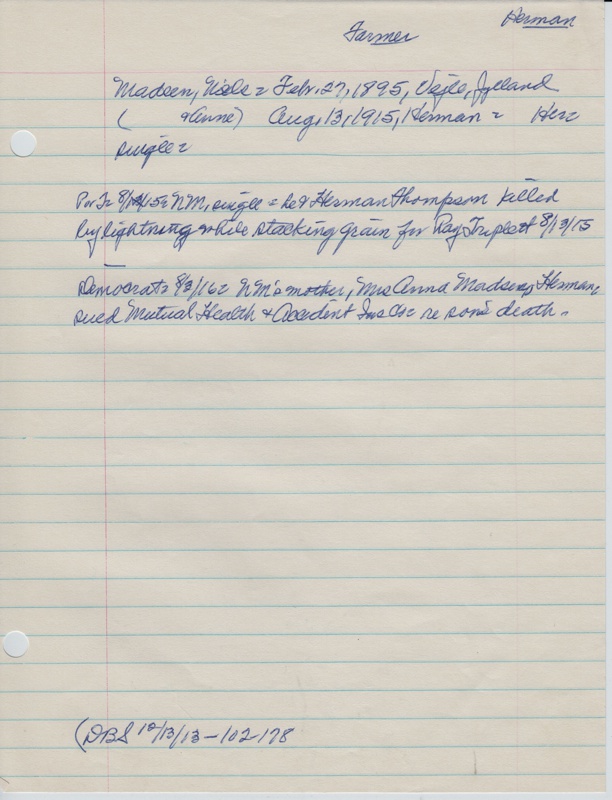 Herman
Farmer
Madsen, Niels = Febr. 27, 1895, Vejle, Jylland
( & Anne) Aug. 13, 1915, Herman = Her =
single =
8/15 = NM, single = he & Herman Thompson killed
by lightning while stacking grain for Ray Triplett 8/13/15
—
Democrat = 8/3/16 = NM's mother, Mrs Anna Madsen, Herman,
sued Mutual Health & Accident Ins Co = re son's death.
(DBS 12/13/13-102-178